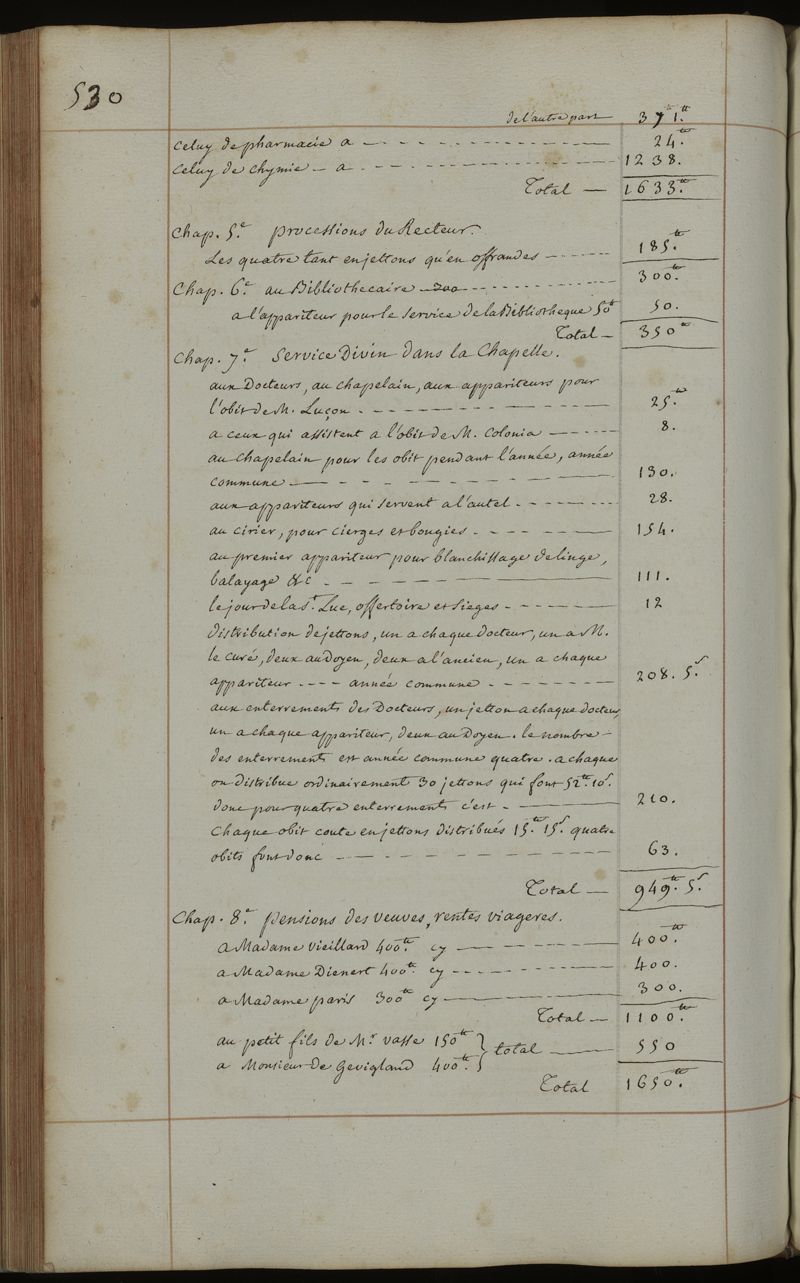 530
de l'autre part 371.tt
celuy de pharmacie a — - - - - - - — 24.tt
celuy de chymie — a - - - - - - - — 1238.
Total — 1633.tt
Chap. 5.e processions du Recteur.
Les quatre tant en jettons qu'en offrandes — - - - - 185.tt
Chap. 6.e au Bibliothecaire — 200 - - - - - - - 300.tt
a l'appariteur pour le service de la Bibliotheque 50tt 50.
Total — 350tt
Chap. 7.e Service Divin dans la Chapelle.
aux Docteurs, au chapelain, aux appariteurs pour
l'obit de M. Luçon - - - - - - - — 25.tt
a ceux qui assistent a l'obit de M. Colonia — - - - - 8.
au chapelain pour les obit pendant l'année, année
commune — - - - - - - - — 130.
aux appariteurs qui servent a l'autel - - - - - - - 28.
au cirier, pour cierges et bougies - - - - - - — 154.
au premier appariteur pour blanchissage de linge,
balayage &c - - - - - - — 111.
le jour de la s.t Luc, offertoire et sieges - - - - - - — 12
distribution de jettons, un a chaque docteur, un a M.
le curé, deux au doyen, deux a l'ancien, un a chaque
appariteur - - - - année commune - - - - - - — 208. 5.s
aux enterrements des Docteurs, un jetton a chaque docteur,
un a chaque appariteur, deux au Doyen. le nombre
des enterrements est année commune quatre. a chaque
on distribue ordinairement 30 jettons qui font 52.tt 10.s
donc pour quatre enterrements c'est - — 210.
chaque obit coute en jettons distribués 15.tt 15.s quatre
obits font donc — - - - - - - — 63.
Total — 949.tt 5.s
Chap. 8.e pensions des veuves, rentes viageres.
a Madame vieillard 400.tt cy — 400.tt
a Madame Dienert 400.tt cy - - - - - - — 400.
a Madame paris 300tt cy — 300.
Total — 1100.tt
au petit fils de M.r vasse 150tt } total — 550
a Monsieur de Gevigland 400.tt }
Total 1650.tt